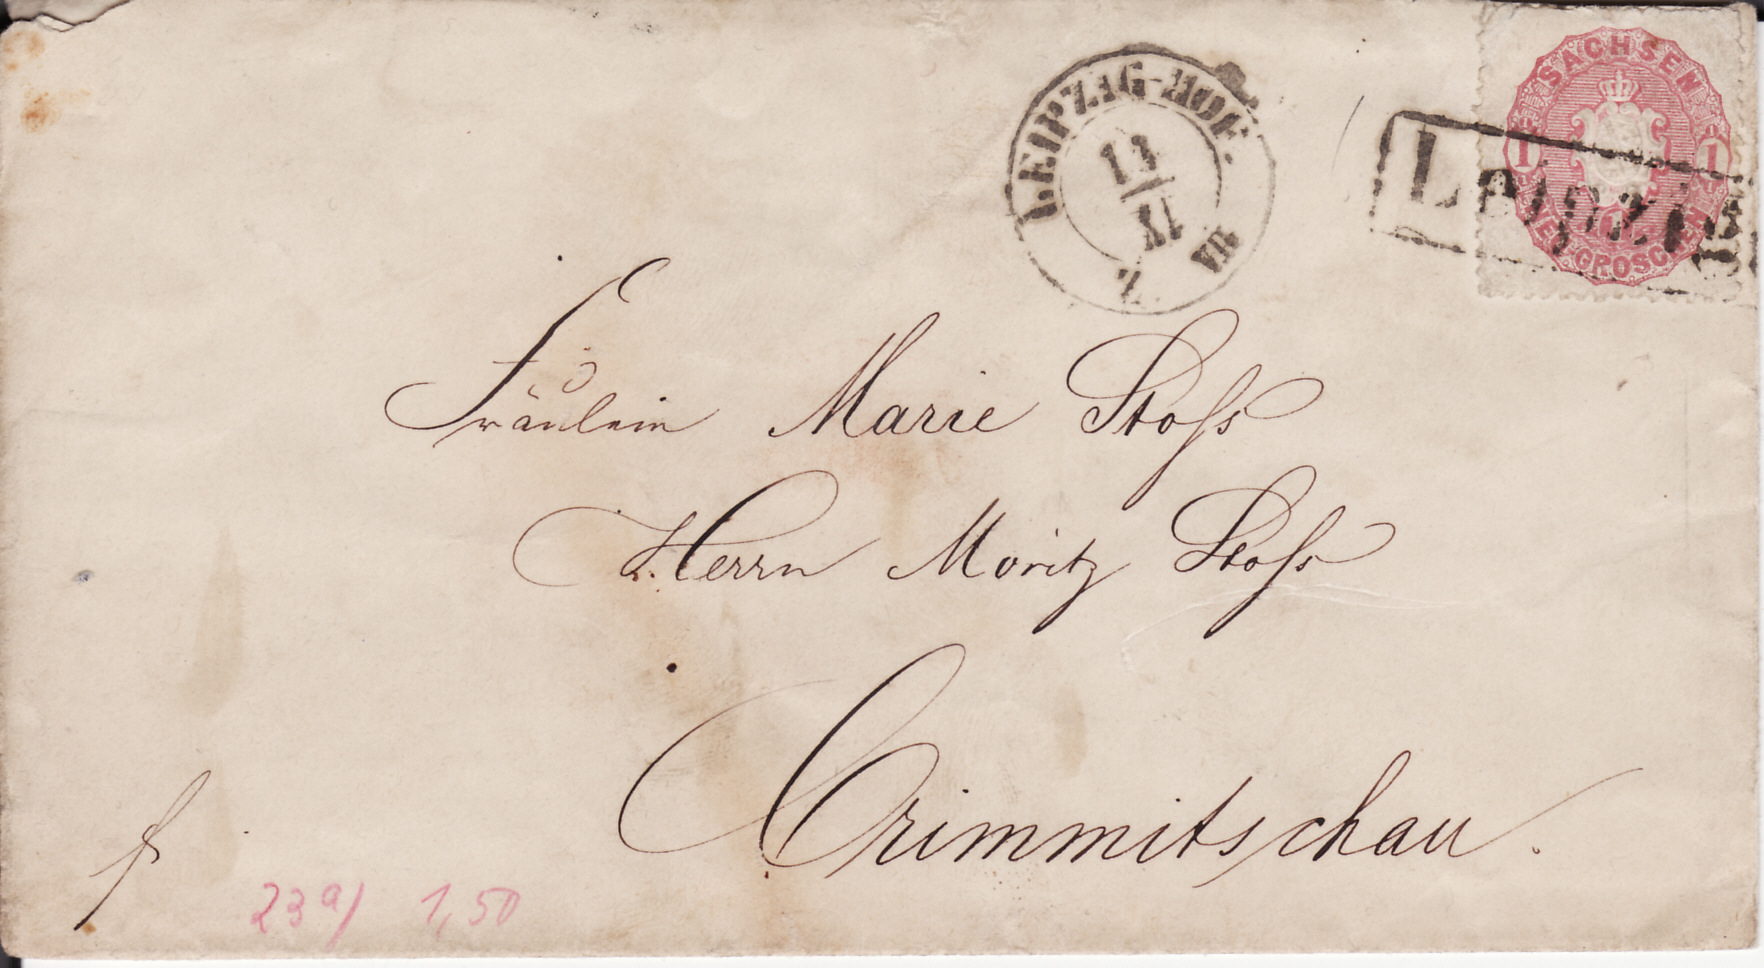 LEIPZIG-HOF.
11
XI
VII
Z.
SACHSEN
1 1
1
NEU-GROSCHEN
Leipzig
Fräulein Marie Stoß
Herrn Moritz Stoß
Crimmitschau.
f
23a) 1,50